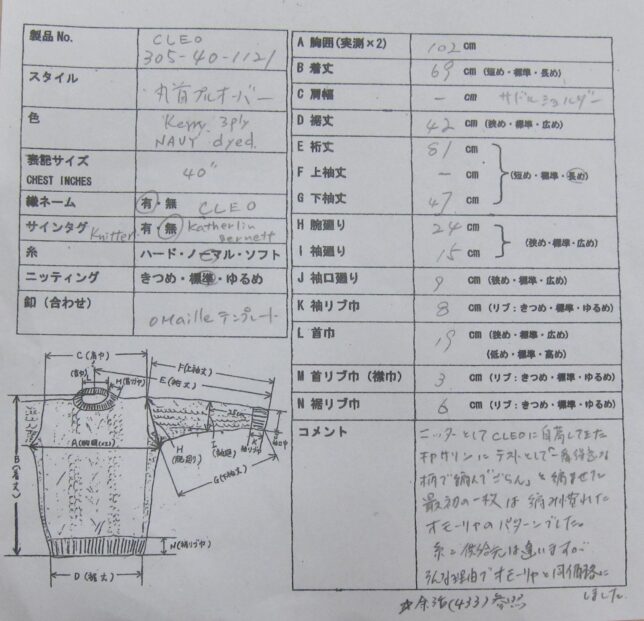 製品No. CLEO
305-40-1121
スタイル 丸首プルオーバー
色 Kerry 3ply
NAVY dyed.
表記サイズ 40"
CHEST INCHES
織ネーム 有・無 CLEO
サインタグ Knitter 有・無 Katherlin
Bernett
糸 ハード・ノーマル・ソフト
ニッティング きつめ・標準・ゆるめ
釦（合わせ）
OMaille テンプレート
A 胸囲(実測×2) 102 cm
B 着丈 69 cm (短め・標準・長め)
C 肩幅 - cm サドルショルダー
D 裾丈 42 cm (狭め・標準・広め)
E 裄丈 81 cm
F 上袖丈 - cm (短め・標準・長め)
G 下袖丈 47 cm
H 腕廻り 24 cm
I 袖廻り 15 cm (狭め・標準・広め)
J 袖口廻り 9 cm (狭め・標準・広め)
K 袖リブ巾 8 cm (リブ：きつめ・標準・ゆるめ)
L 首巾 19 cm (狭め・標準・広め)
(低め・標準・高め)
M 首リブ巾（襟巾） 3 cm (リブ：きつめ・標準・ゆるめ)
N 裾リブ巾 6 cm (リブ：きつめ・標準・ゆるめ)
コメント
ニッターとしてCLEOに自薦してきた
キャサリンにテストとして「一番得意な
柄で編んでごらん」と編ませた
最初の一枚は編み慣れた
オモーリャのパターンでした。
糸の供給元は違いますが
そんな理由でオモーリャと同価格に
しました。
(433)参照
C(肩巾)
F(上袖丈)
E(裄丈)
A(胸囲×2)
B(着丈)
H
(腕廻り)
I
G(下袖丈)
K
N(裾リブ巾)
D(裾丈)